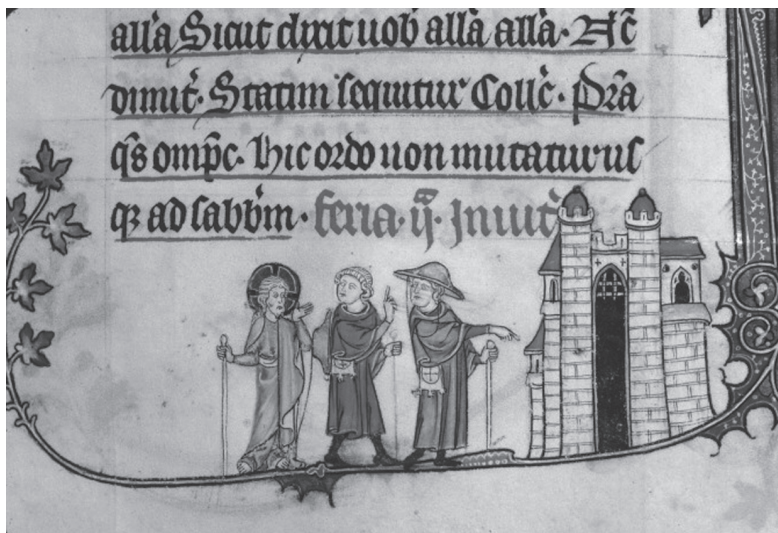 all'a Sicut dixit uob' all'a all'a. Ac
dimit'. Statim sequitur Coll'c. Pr̄a
q̄s omp̄c. Hic ordo non mutatur us
q3 ad sabb'm. feria. ij. Inuit'